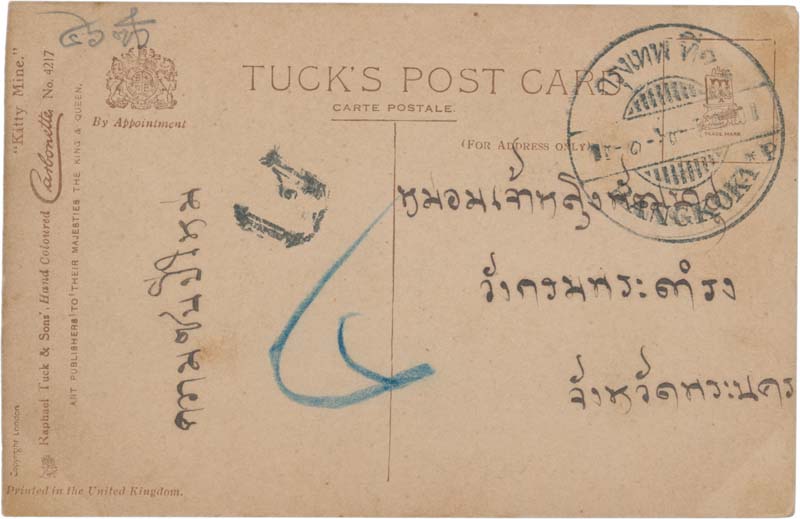 TUCK'S POST CARD
CARTE POSTALE.
(FOR ADDRESS ONLY)
By Appointment
"Kitty Mine."
Raphael Tuck & Sons', Hand Coloured Carbonette No. 4217
ART PUBLISHERS TO THEIR MAJESTIES THE KING & QUEEN.
Copyright London
Printed in the United Kingdom.
TRADE MARK
กรุงเทพ ที่
BANGKOK
ความชนปีใหม่
หม่อมเจ้าหญิง
วังกรมพระดำรง
จังหวัดพระนคร